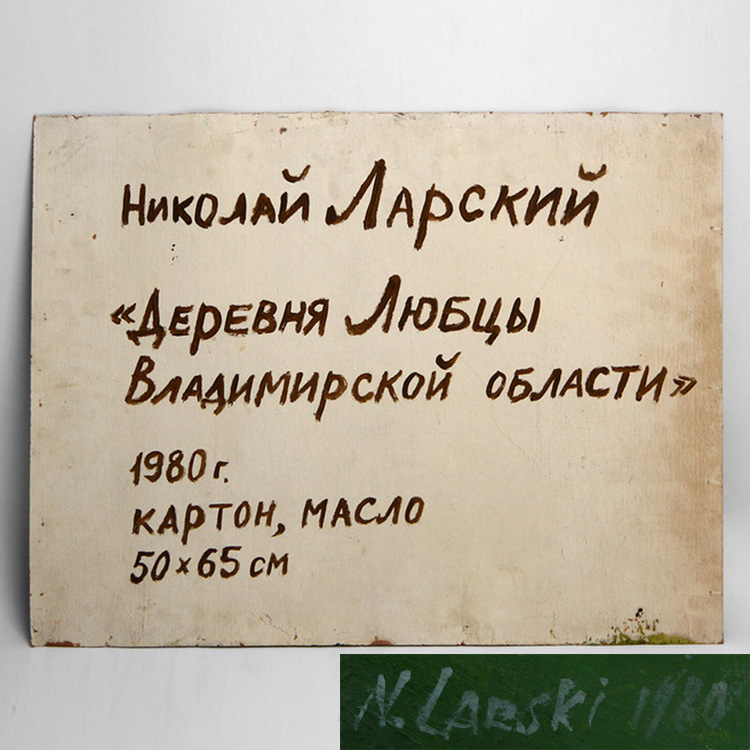 Николай Ларский
«Деревня Любцы
Владимирской области»
1980 г.
картон, масло
50×65 см
N. Larski 1980